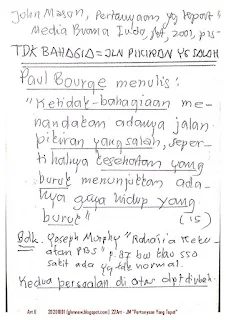 John Mason, Pertanyaan yg tepat"
Media Buana Indo, Jkt, 2001, p15-
TDK BAHAGIA = JLN PIKIRAN YG SALAH
Paul Bourge menulis:
"Ketidak-bahagiaan me-
nandakan adanya jalan
pikiran yang salah, seper-
ti halnya kesehatan yang
buruk menunjukkan ada-
nya gaya hidup yang
buruk" (15)
Bdk. Joseph Murphy "Rahasia Keku-
atan PBS" p. 87 bw tlau sso
sakit ada yg tdk normal.
Kedua persoalan di atas dpt diubah.
Art © 20201001 (glmeew.blogspot.com) ZZArt - JM "Pertanyaan Yang Tepat"